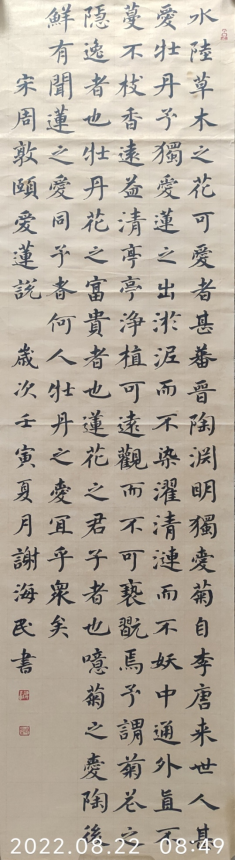 水陸草木之花可愛者甚蕃晉陶淵明獨愛菊自李唐来世人甚
愛牡丹予獨愛蓮之出淤泥而不染濯清漣而不妖中通外直不
蔓不枝香遠益清亭亭淨植可遠觀而不可褻翫焉予謂菊花之
隱逸者也牡丹花之富貴者也蓮花之君子者也噫菊之愛陶後
鮮有聞蓮之愛同予者何人牡丹之愛宜乎衆矣
宋周敦頤愛蓮説 歲次壬寅夏月謝海民書
2022.08.22 08:49